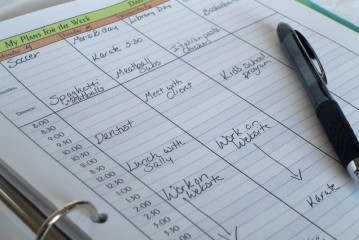 My Plans for the Week
Library Day
Soccer
Karate 5:30
Spaghetti
Meatballs
Meatball
Subs
Italian pasta
Chicken
Meet with
Client
Kids school
program
Dinner
8:00
8:30
9:00
9:30
10:00
10:30
11:00
11:30
12:00
12:30
1:00
1:30
2:00
2:30
3:00
3:30
Dentist
Lunch with
Sally
Work on
Website
Work on
Website
Karate